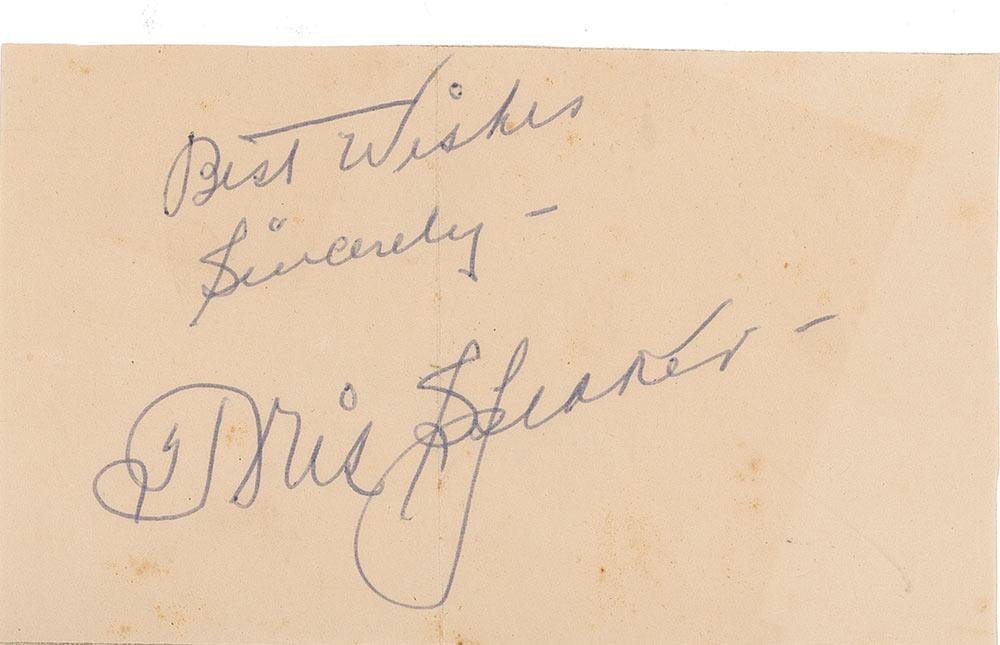 Best Wishes
Sincerely -
Tris Speaker -